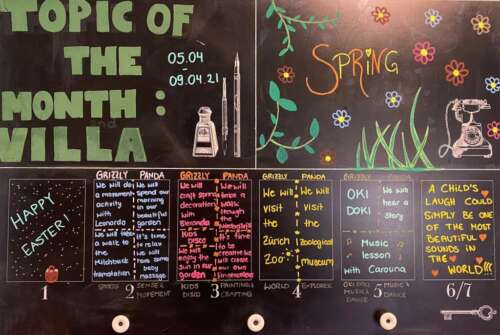 TOPIC OF
THE
MONTH:
VILLA
05.04 -
09.04.21
SPRING
HAPPY
EASTER!
1
GRIZZLY
We will do
a movement
activity
with
Leonardo
We will
a walk
to the
Milchbuck
PANDA
We will
spend our
morning
in our
beautiful
garden
It's time
to relax
We will
have some
body
massage
SPEEDY
2
SENSE &
MOVEMENT
GRIZZLY
We will
craft
decorations
with
KIDS
DISCO
We will
enjoy the
sun in our
garden
PANDA
We will
a
walk
through
the
It's time
to be
creative
We will
create our
own
KIDS
DISCO
3
PAINTING &
CRAFTING
GRIZZLY
PANDA
We will
visit
the
Zürich
Zoo
We will
visit
the
Zoological
museum
WORLD
4
EXPLORER
GRIZZLY
PANDA
OKI
DOKI
We will
hear a
story
Music
lesson
with Carouna
MUSIC &
DANCE
5
MUSIC &
DANCE
A CHILD'S
LAUGH COULD
SIMPLY BE
ONE OF THE
MOST
BEAUTIFUL
SOUNDS IN
THE
WORLD!!!
6/7